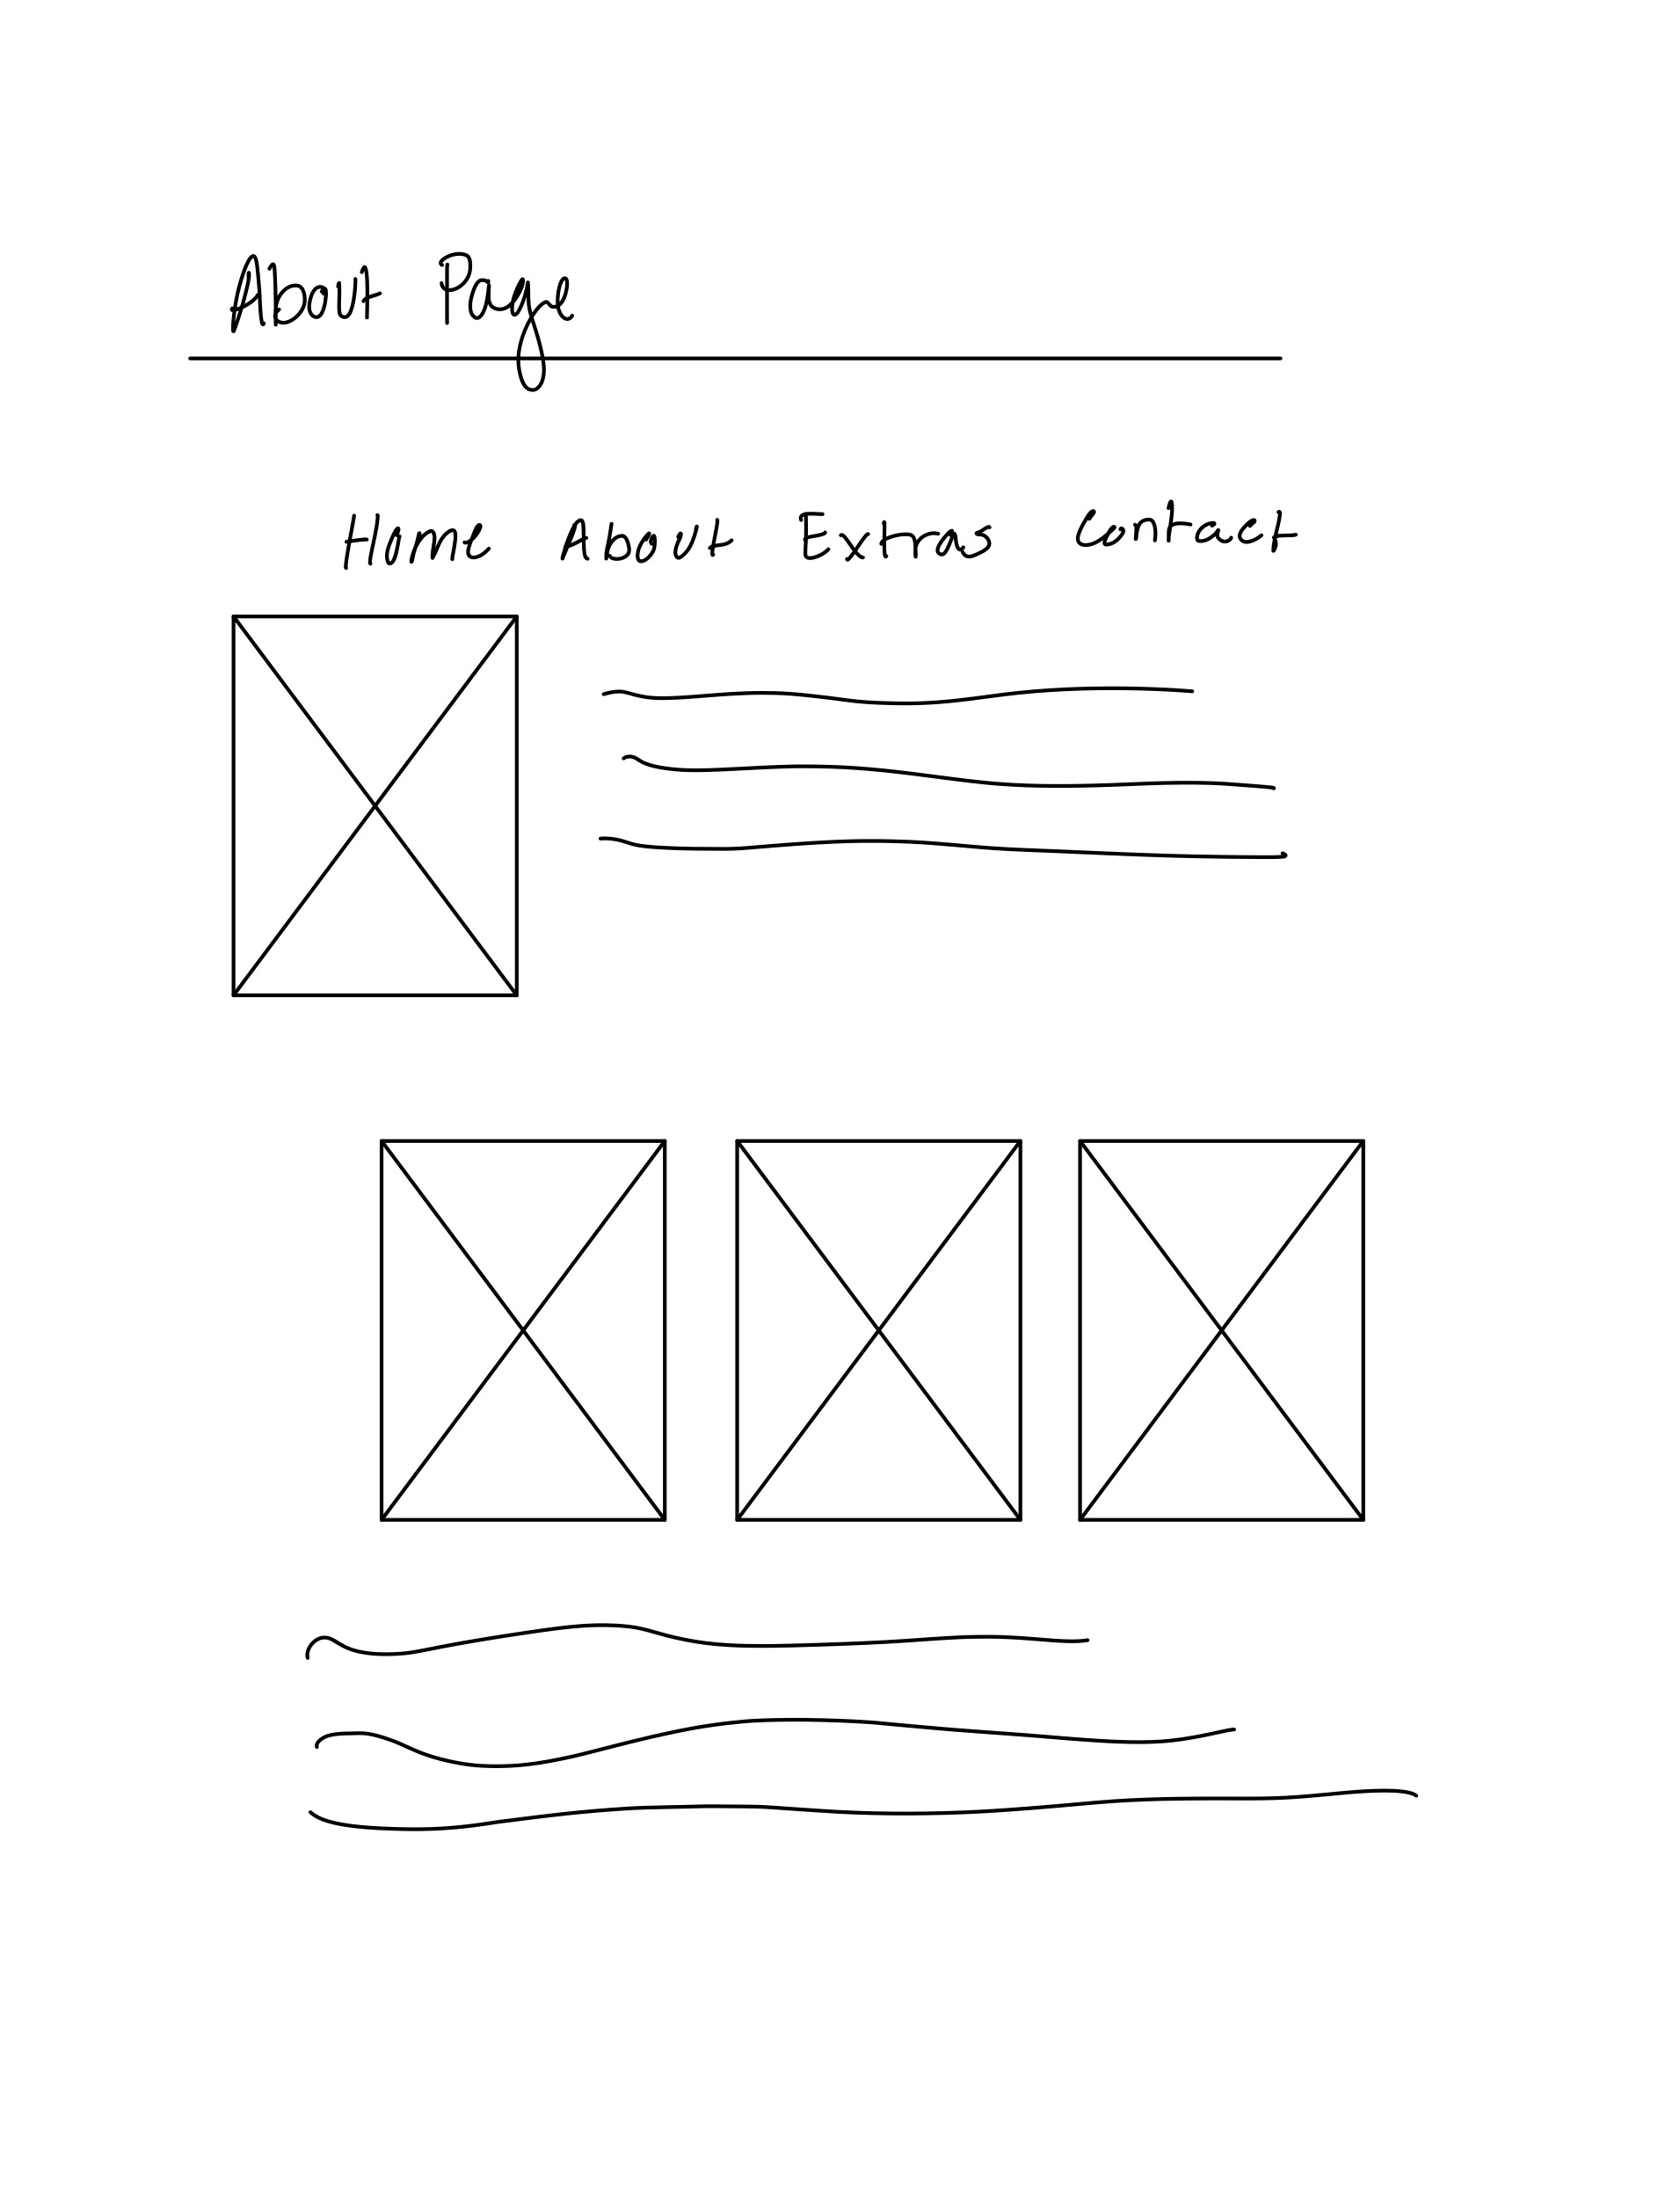 About Page
Home About Extras Contact